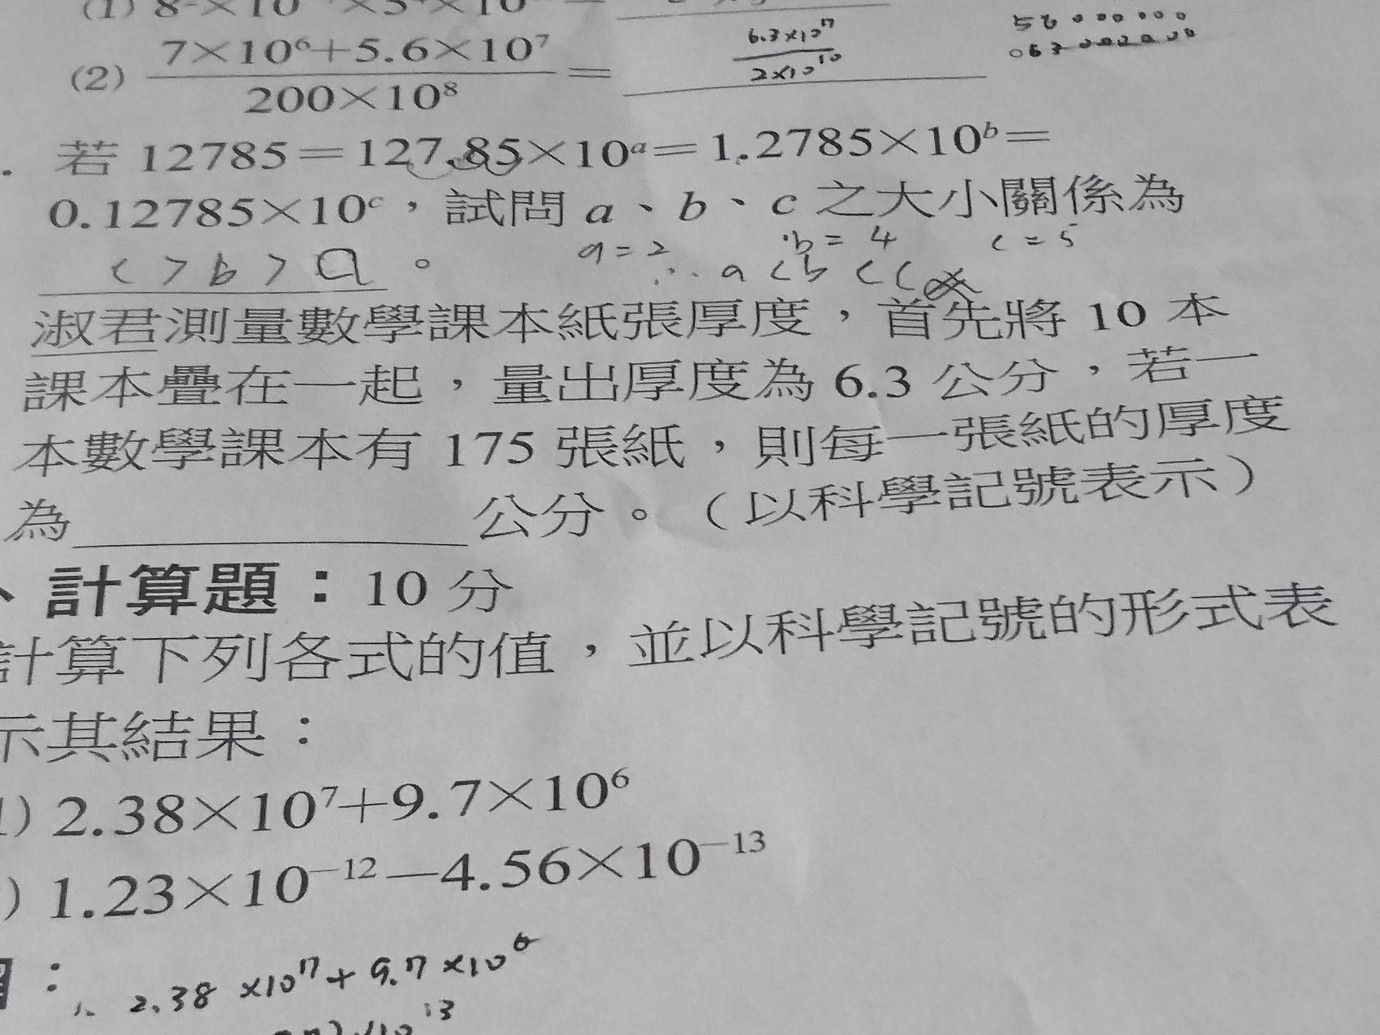 (1) 8
(2) 7×10⁶+5.6×10⁷ / 200×10⁸ = 6.3×10⁷ / 2×10¹⁰
若 12785＝127.85×10ᵃ＝1.2785×10ᵇ＝
0.12785×10ᶜ，試問 a、b、c 之大小關係為
a=2 b=4 c=5
c > b > a 。 ∴ a < b < c
淑君測量數學課本紙張厚度，首先將 10 本
課本疊在一起，量出厚度為 6.3 公分，若一
本數學課本有 175 張紙，則每一張紙的厚度
為 公分。（以科學記號表示）
、計算題：10 分
計算下列各式的值，並以科學記號的形式表
示其結果：
1) 2.38×10⁷+9.7×10⁶
) 1.23×10⁻¹²−4.56×10⁻¹³
： 2.38×10⁷+9.7×10⁶